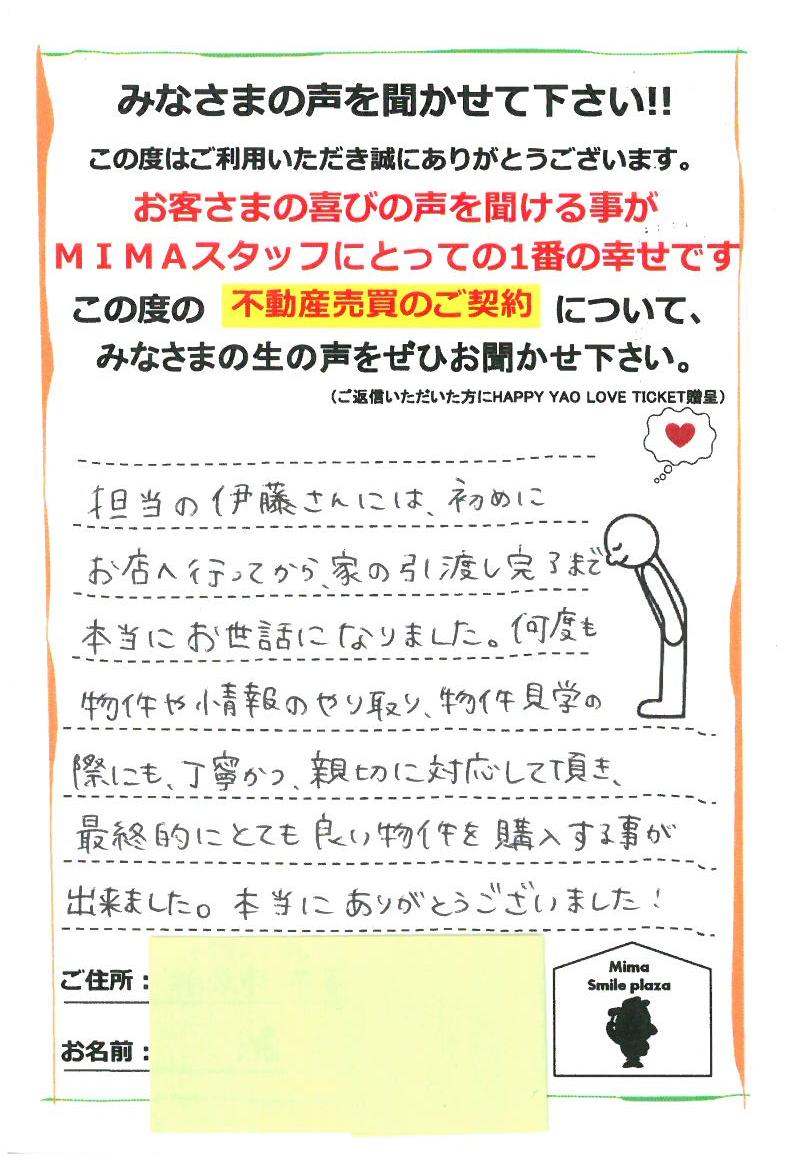 みなさまの声を聞かせて下さい!!
この度はご利用いただき誠にありがとうございます。
お客さまの喜びの声を聞ける事が
ＭＩＭＡスタッフにとっての1番の幸せです
この度の 不動産売買のご契約 について、
みなさまの生の声をぜひお聞かせ下さい。
（ご返信いただいた方にHAPPY YAO LOVE TICKET贈呈）
担当の伊藤さんには、初めに
お店へ行ってから、家の引渡し完了まで
本当にお世話になりました。何度も
物件や情報のやり取り、物件見学の
際にも、丁寧かつ、親切に対応して頂き、
最終的にとても良い物件を購入する事が
出来ました。本当にありがとうございました！
ご住所：
お名前：
Mima
Smile plaza